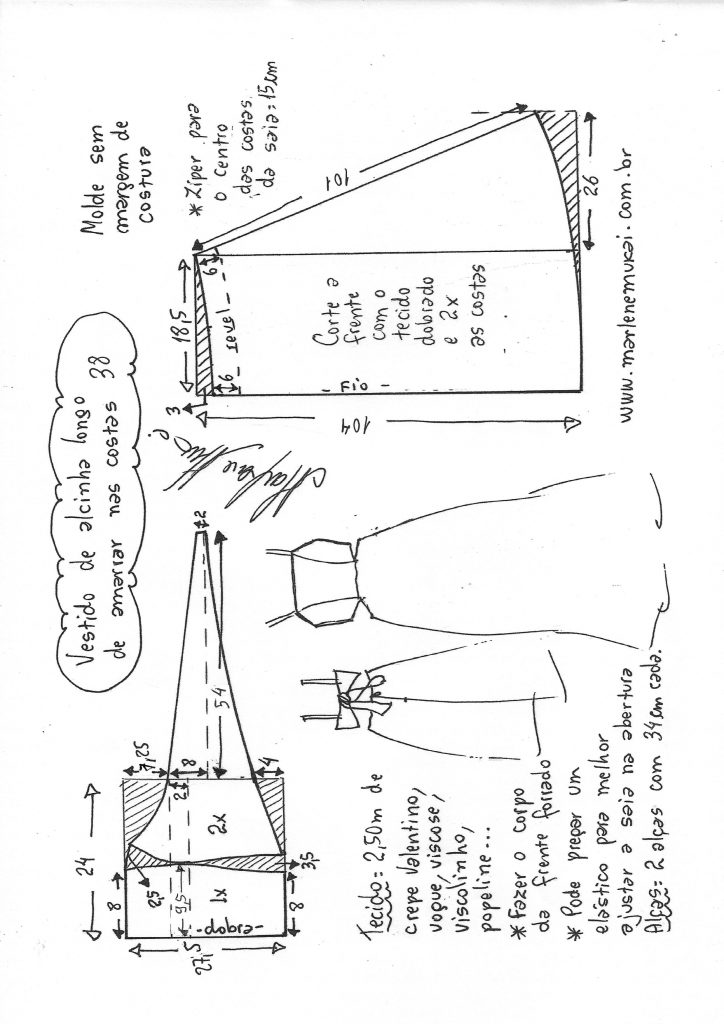 Vestido de alcinha longo
de amarrar nas costas 38
Molde sem
margem de
costura
* Ziper para
o centro
das costas
da saia = 15cm
24
8
27,5
9,5
2,5
- dobra -
1x
2x
7,25
2
8
4
3,5
8
54
2
3
18,5
6
6
- revel -
101
104
- Fio -
Corte a
frente
com o
tecido
dobrado
e 2x
as costas
26
www.marlenemukai.com.br
Tecido = 2,50m de
crepe Valentino,
voque, viscose,
viscolinho,
popeline...
* Fazer o corpo
da frente forrado
* Pode pregar um
elástico para melhor
ajustar a saia na abertura
Alças = 2 alças com 34cm cada.